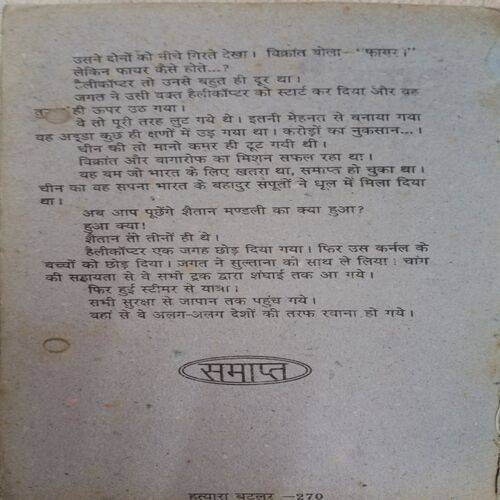 उसने दोनों को नीचे गिरते देखा। विक्रांत बोला—"फायर।"
लेकिन फायर कैसे होते...?
हैलीकॉप्टर तो उनसे बहुत ही दूर था।
जगत ने उसी वक्त हैलीकॉप्टर को स्टार्ट कर दिया और वह
ही ऊपर उठ गया।
वे तो पूरी तरह लुट गये थे। इतनी मेहनत से बनाया गया
वह अड्डा कुछ ही क्षणों में उड़ गया था। करोड़ों का नुकसान...।
चीन की तो मानो कमर ही टूट गयी थी।
विक्रांत और बागारोफ का मिशन सफल रहा था।
वह बम जो भारत के लिए खतरा था, समाप्त हो चुका था।
चीन का वह सपना भारत के बहादुर सपूतों ने धूल में मिला दिया
था।
अब आप पूछेंगे शैतान मण्डली का क्या हुआ?
हुआ क्या!
शैतान तो तीनों ही थे।
हैलीकॉप्टर एक जगह छोड़ दिया गया। फिर उस कर्नल के
बच्चों को छोड़ दिया। जगत ने सुल्ताना को साथ ले लिया। चांग
की सहायता से वे सभी ट्रक द्वारा शंघाई तक आ गये।
फिर हुई स्टीमर से यात्रा।
सभी सुरक्षा से जापान तक पहुंच गये।
वहां से वे अलग-अलग देशों की तरफ रवाना हो गये।
समाप्त
हत्यारा बटलर —270